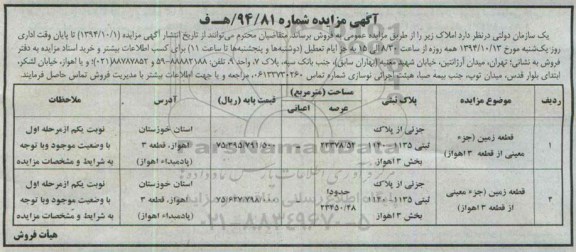 آگهی مزایده شماره ۹۴/۸۱/هـ‌ف
یک سازمان دولتی درنظر دارد املاک زیر را از طریق مزایده عمومی به فروش برساند. متقاضیان محترم می‌توانند از تاریخ انتشار آگهی مزایده (۱۳۹۴/۱۰/۱) تا پایان وقت اداری
روز یک‌شنبه مورخ ۱۳۹۴/۱۰/۱۳ همه روزه از ساعت ۸/۳۰ الی ۱۵ به جز ایام تعطیل (دوشنبه‌ها و پنجشنبه‌ها تا ساعت ۱۱) برای کسب اطلاعات بیشتر و خرید اسناد مزایده به دفتر
فروش به نشانی: تهران، میدان آرژانتین، خیابان شهید (بهاران سابق)، جنب بانک سپه، پلاک ۷، واحد ۹، تلفن: ۸۸۸۸۲۱۸۸-۵۹ و ۸۸۷۸۷۵۵۲(۰۲۱) و یا اهواز، خیابان لشکر،
ابتدای بلوار قدس، میدان توپ، جنب بیمه صبا، هیئت اجرائی نوسازی شماره تماس ۰۶۱۳۳۷۳۰۲۶۰ مراجعه و یا جهت اطلاعات بیشتر با مدیریت فروش تماس حاصل فرمایند.
ردیف موضوع مزایده پلاک ثبتی مساحت (مترمربع) قیمت پایه (ریال) آدرس ملاحظات
عرصه اعیانی
۱ قطعه زمین (جزء معینی از قطعه ۳ اهواز) جزئی از پلاک ثبتی ۱۱۳۵-۱۱۴۰ بخش ۳ اهواز ۲۳۳۷۸/۵۲ استان خوزستان اهواز، قطعه ۳ (پادمیداء اهواز) نوبت یکم ازمرحله اول با وضعیت موجود وبا توجه به شرایط و مشخصات مزایده
۲ قطعه زمین (جزء معینی از قطعه ۳ اهواز) جزئی از پلاک ثبتی ۱۱۳۵-۱۱۴۰ بخش ۳ اهواز حدوداً ۲۳۴۵۰/۴۸ استان خوزستان اهواز، قطعه ۳ (پادمیداء اهواز) نوبت یکم ازمرحله اول با وضعیت موجود وبا توجه به شرایط و مشخصات مزایده
هیأت فروش